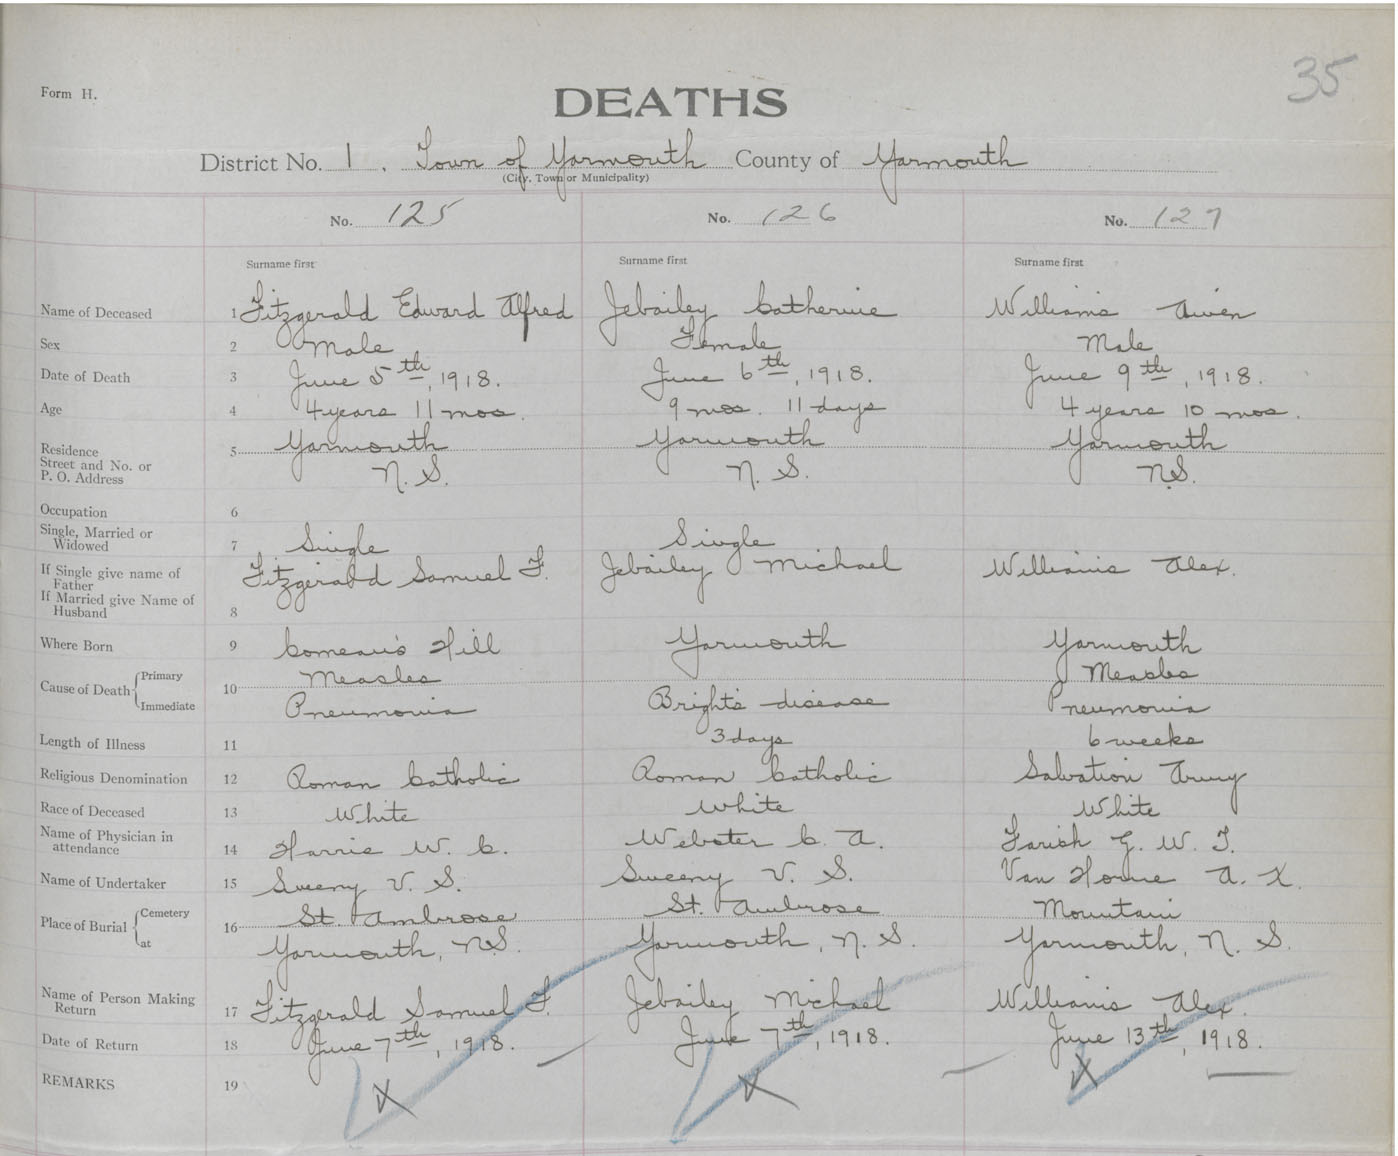 35
Form H.
DEATHS
District No. 1. Town of Yarmouth County of Yarmouth
(City, Town or Municipality)
No. 125 No. 126 No. 127
Surname first Surname first Surname first
Name of Deceased 1 Fitzgerald Edward Alfred Jebailey Catherine Williams Aiven
Sex 2 Male Female Male
Date of Death 3 June 5th, 1918. June 6th, 1918. June 9th, 1918.
Age 4 4 years 11 mos. 9 mos. 11 days 4 years 10 mos.
Residence 5 Yarmouth Yarmouth Yarmouth
Street and No. or
P. O. Address N. S. N. S. N.S.
Occupation 6
Single, Married or
Widowed 7 Single Single
If Single give name of Fitzgerald Samuel F. Jebailey Michael Williams Alex.
Father
If Married give Name of
Husband 8
Where Born 9 Comeau's Hill Yarmouth Yarmouth
Cause of Death Primary 10 Measles Measles
Immediate Pneumonia Bright's disease Pneumonia
Length of Illness 11 3 days 6 weeks
Religious Denomination 12 Roman Catholic Roman Catholic Salvation Army
Race of Deceased 13 White White White
Name of Physician in
attendance 14 Harris W. C. Webster C. A. Farish G. W. T.
Name of Undertaker 15 Sweeny V. S. Sweeny V. S. Van Horne A. K.
Place of Burial Cemetery 16 St. Ambrose St. Ambrose Mountain
at Yarmouth, N.S. Yarmouth, N. S. Yarmouth, N. S.
Name of Person Making
Return 17 Fitzgerald Samuel F. Jebailey Michael Williams Alex.
Date of Return 18 June 7th, 1918. June 7th, 1918. June 13th, 1918.
REMARKS 19